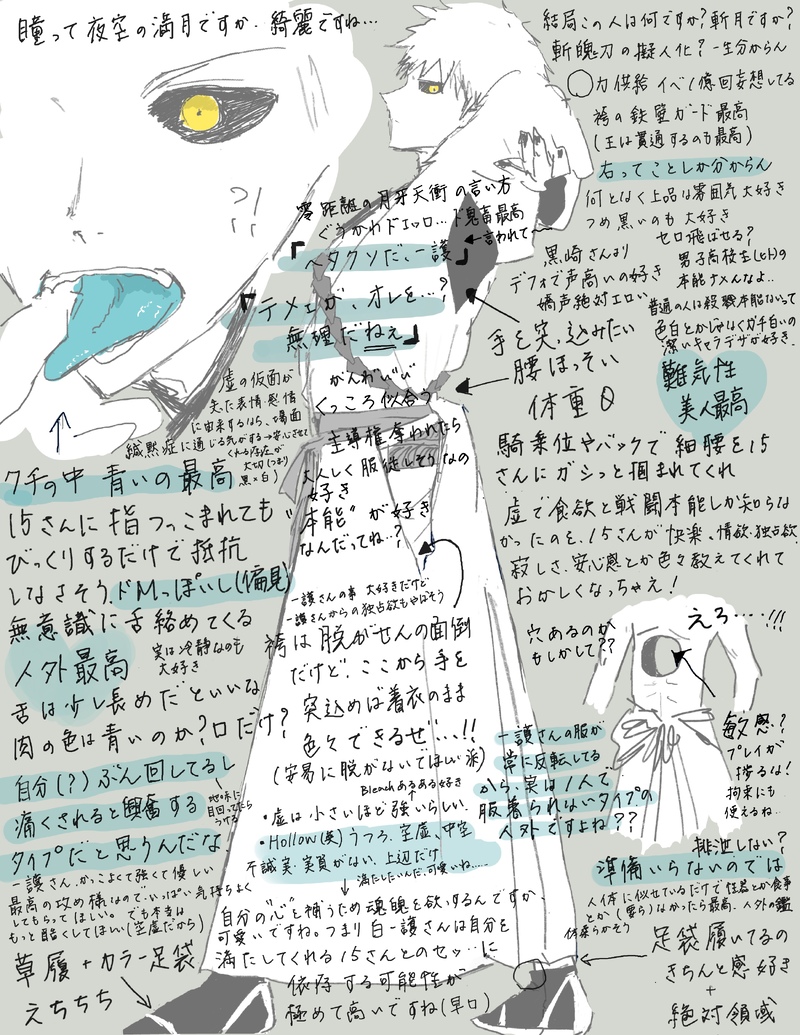 瞳って夜空の満月ですか．綺麗ですね…
結局この人は何ですか？斬月ですか？
斬魄刀の擬人化？一生分からん
◯力供給イベ1億回妄想してる
袴の鉄壁ガード最高
(王は貫通するのも最高)
右ってことしか分からん
何となく上品な雰囲気大好き
つめ黒いのも大好き
零距離の月牙天衝の言い方
ぐうかわドエッロ…ド鬼畜最高
言われて〜
『ヘタクソだ、一護』
『テメェが、オレを…?
無理だねぇ』
がんわいい
くっころ似合う
主導権奪われたら
大人しく服従しそうなの
好き
"本能"が好き
なんだってね…?
黒崎さんより
デフォで声高いの好き
嬌声絶対エロい
セロ飛ばせる？
男子高校生(ヒト)の
本能ナメんなよ…
普通の人は殺戮本能ないって
色白とかじゃなくガチ白いの
潔いキャラデザが好き．
手を突っ込みたい
腰ほっそい
体重0
難気性
美人最高
騎乗位やバックで細腰を15
さんにガシっと掴まれてくれ
虚で食欲と戦闘本能しか知らな
かったのを、15さんが快楽、情欲、独占欲、
寂しさ、安心感とか色々教えてくれて
おかしくなっちゃえ！
虚の仮面が
失た表情感情
に由来するなら、場面
緘黙症に通じる気がする→安心させて
くれる存在が
大切(つまり
黒×白)
クチの中青いの最高
15さんに指つっこまれても
びっくりするだけで抵抗
しなさそう．ドMっぽいし(偏見)
無意識に舌絡めてくる
人外最高
実は冷静なのも
大好き
舌は少し長めだといいな
肉の色は青いのか？口だけ？
自分(?)ぶん回してるし
痛くされると興奮する
タイプだと思うんだな．
地味に
目回ってたら
うける
一護さん、かっこよくて強くて優しい
最高の攻め様なので、いっぱい気持ちよく
してもらってほしい。でも本当は
もっと酷くしてほしい(空虚だから)
草履＋カラー足袋
えちちち
一護さんの事大好きだけど
一護さんからの独占欲もやばそう
袴は脱がせんの面倒
だけど、ここから手を
突込めば着衣のまま
色々できるぜ…!!
(安易に脱がないでほしい派)
Bleachあるある好き
・虚は小さいほど強いらしい．
・Hollow(英)うつろ、空虚、中空
不誠実、実質がない、上辺だけ
満たしたいんだ．可愛いね……
自分の"心"を補うため魂魄を欲するんですか、
可愛いですね。つまり白一護さんは自分を
満たしてくれる15さんとのセッ…に
依存する可能性が
極めて高いですね(早口)
穴あるのか
もしかして??
えろ……!!!
敏感？
プレイが
捗るな！
拘束にも
使えるね．
一護さんの服が
常に反転してる
から、実は1人で
服着られないタイプの
人外ですよね??
排泄しない？
準備いらないのでは
人体に似せているだけで性器とか食事
とか(要ら)なかったら最高．人外の鑑
体柔らかそう
足袋履いてるの
きちんと感好き
＋
絶対領域